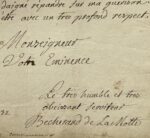 daigne répandre sur ma guerison
être avec un tres profond respect.
Monseigneur
Votre Eminence
Le tres humble et tres
obeissant serviteur
Becherand de La Motte